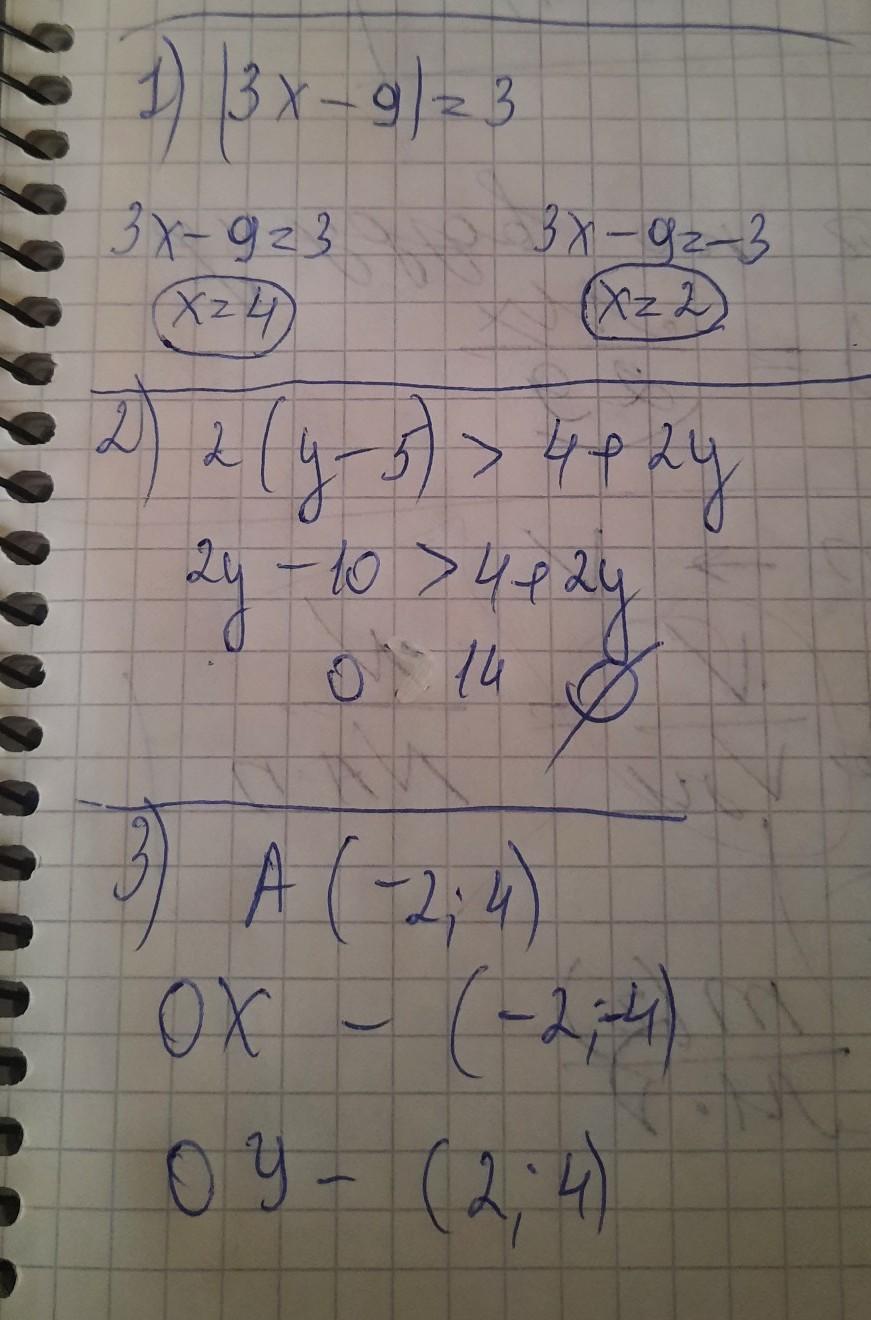 1) |3x - 9| = 3
3x - 9 = 3 3x - 9 = -3
x = 4 x = 2
2) 2(y - 5) > 4 + 2y
2y - 10 > 4 + 2y
0 14 ∅
3) A (-2; 4)
OX - (-2; -4)
OY - (2; 4)